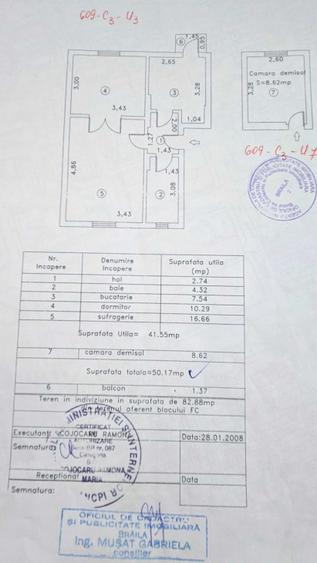 609-C3-U3
6
1,45
0,95
2,65
2,60
Camara demisol
S=8.62mp
3,28
7
3,00
4
3
3,28
3,43
2,00
1,04
1,27
1
1,43
609-C3-U7
4,86
1,43
5
2
3,08
3,43
BRAILA
Nr. Incapere
Denumire Incapere
Suprafata utila (mp)
1 hol 2.74
2 baie 4.32
3 bucatarie 7.54
4 dormitor 10.29
5 sufragerie 16.66
Suprafata Utila= 41.55mp
7 camara demisol 8.62
Suprafata totala=50.17mp
6 balcon 1.37
Teren in indiviziune in suprafata de 82.88mp
aferent blocului FC
Executant COJOCARU RAMONA Data:28.01.2008
Semnatura:
CERTIFICAT
AUTORIZARE
COJOCARU RAMONA
MARIA
Receptionat Data
Semnatura:
OFICIUL DE CADASTRU
SI PUBLICITATE IMOBILIARA
BRĂILA
Ing. MUŞAT GABRIELA
consilier